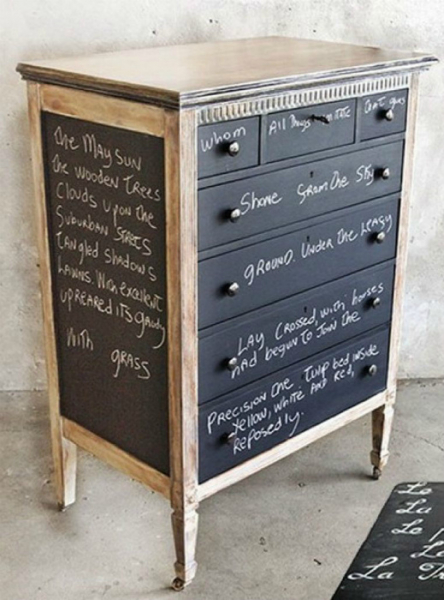 The MAY SUN
the wooden Trees
Clouds upon the
Suburban Streets
Tangled shadows
Lawns. With excellent
upreared its gawdy
With
grass
whom
All Things imitate
that gives
Shone from the Sky
GROUND. Under the Leafy
LAY Crossed, with horses
had begun to Join the
PRECISION the Tulip bed inside
Yellow, White AND Red,
Reposedly.
Le
Lu
Le
La
La
Th